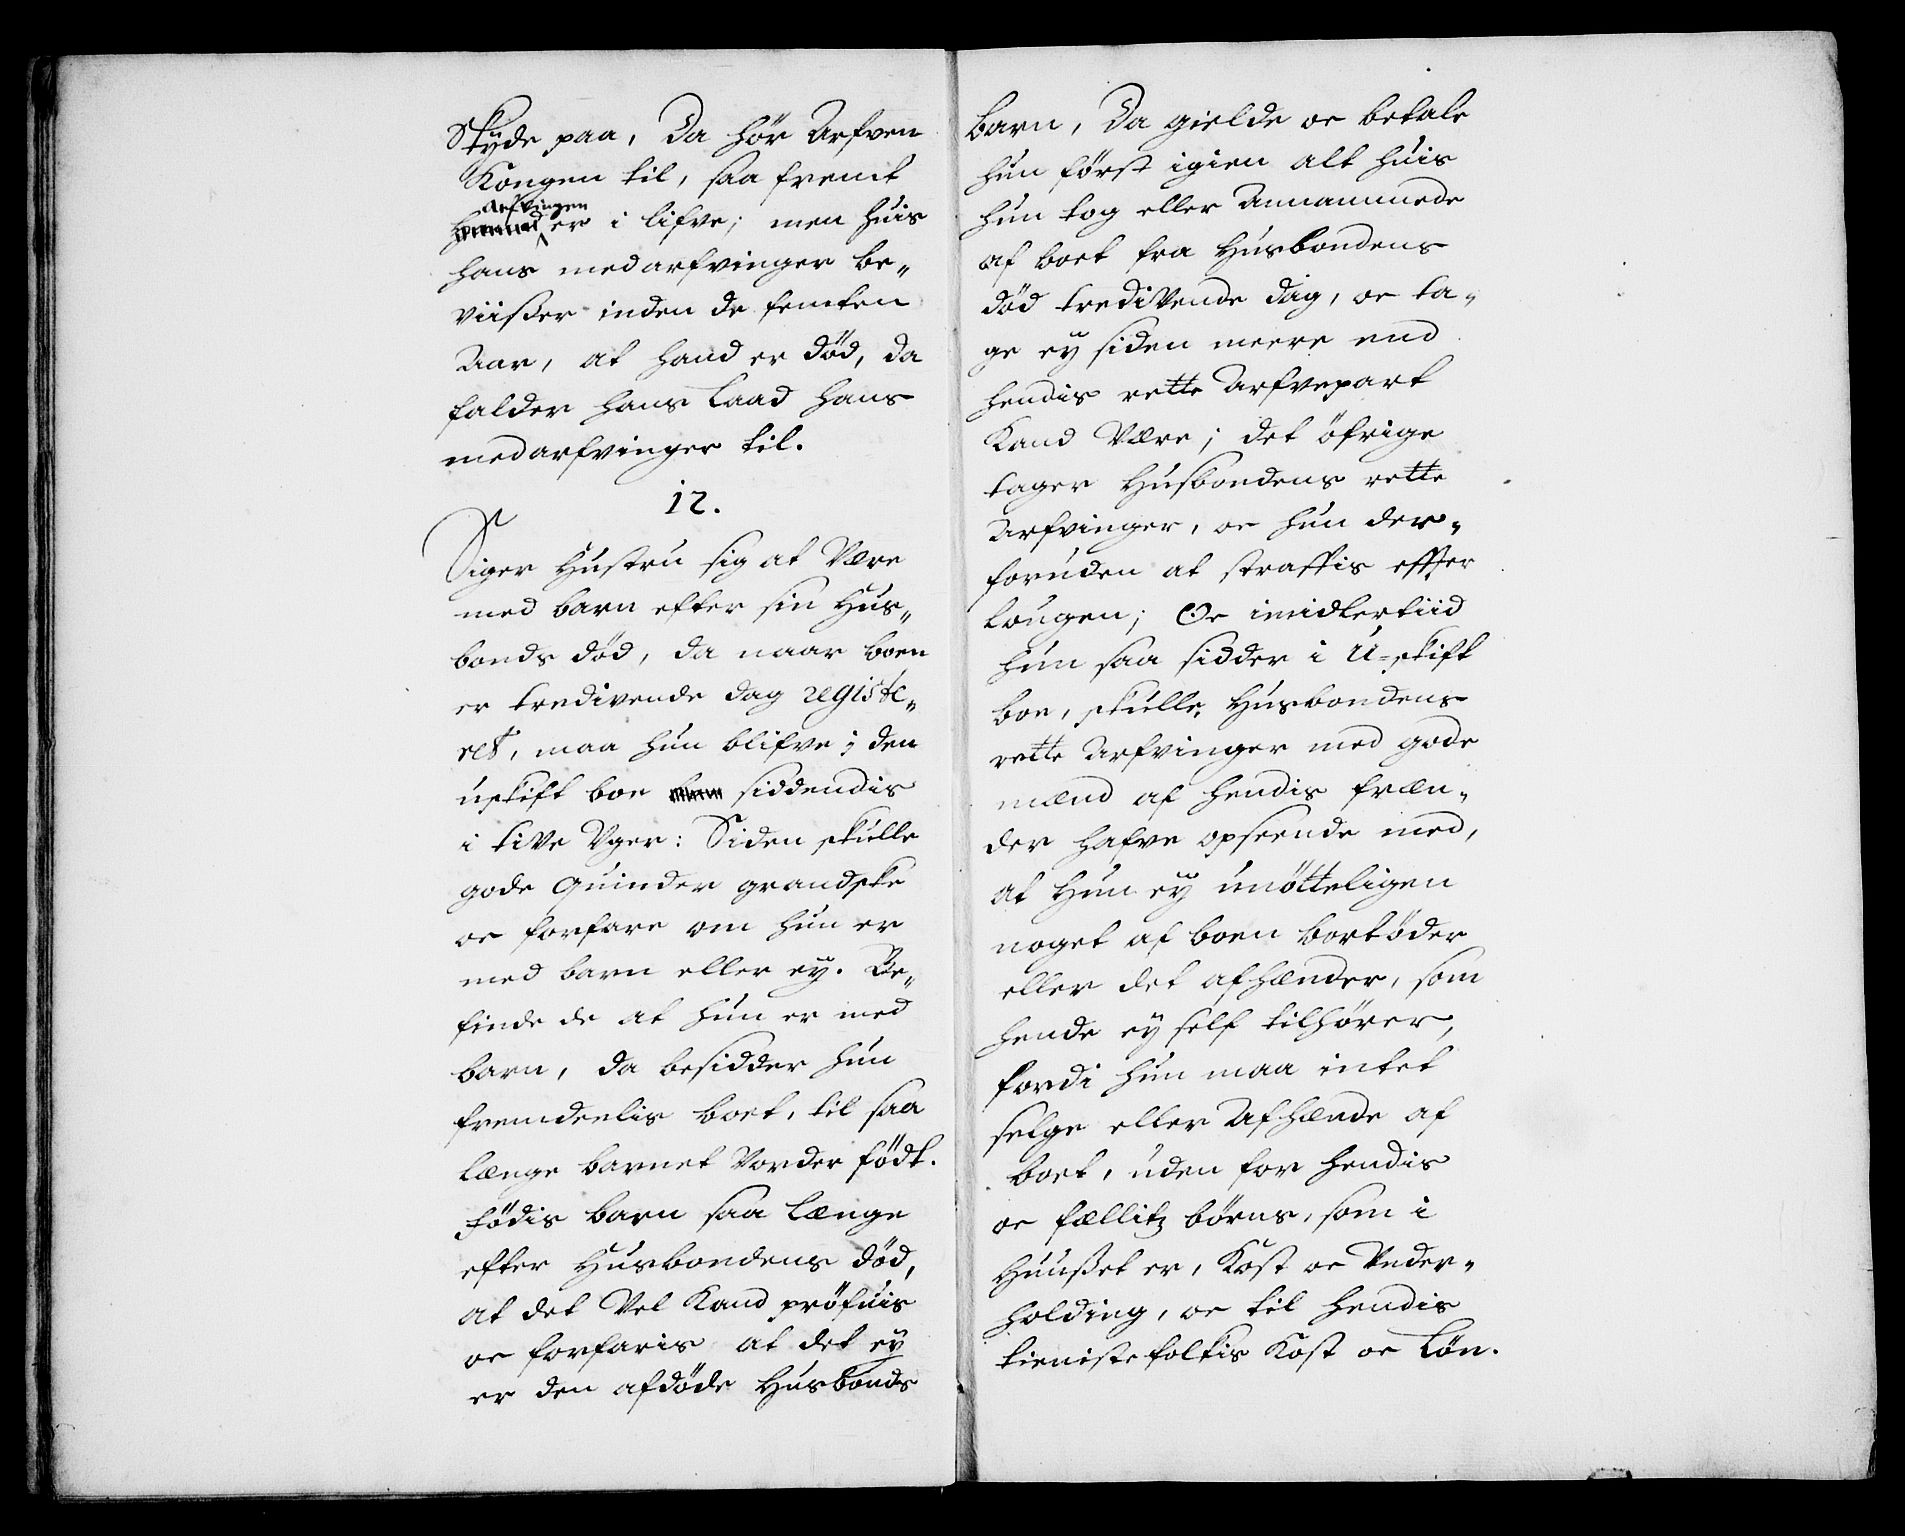 Skyde paa, Da hör Arfven
Kongen til, saa fremt
Arfvingen
er i lifve; men huis
hans medarfvinger be„
viißer inden de femten
Aar, at hand er död, da
falder hans laad hans
medarfvinger til.
12.
Siger Hustru sig at Være
med barn efter sin Hus„
bonds död, da naar boen
er tredivende dag registe„
ret, maa hun blifve i den
uskift boe siddendis
i tive Uger: Siden skulle
gode Quinder grandske
oc forfare om hun er
med barn eller eÿ. Be„
finde de at hun er med
barn, da besidder hun
fremdeelis boet, til saa
længe barnet Vorder födt.
födis barn saa længe
efter Husbondens död,
at det Vel Kand pröfuis
oc forfaris at det eÿ
er den afdöde Husbonds
barn, Da gielde oc betale
hun först igien alt huis
hun tog eller Annammede
af boet fra Husbondens
död trediVende dag, oc ta„
ge eÿ siden meere end
hendis rette Arfvepart
Kand Være; det öfrige
tager Husbondens rette
Arfvinger, oc hun der„
foruden at straffis effter
Lougen; Oc imidlertiid
hun saa sidder i U-skift
boe, skulle Husbondens
rette Arfvinger med gode
mænd af hendis fræn„
der hafve opseende med,
at Hun eÿ unötteligen
noget af boen bortöder
eller det afhænder, som
hende eÿ self tilhörer,
fordi hun maa intet
selge eller Afhænde af
boet, uden for hendis
oc fællitz börns, som i
Huußet er, Kost oc Under„
holding, oc til hendis
tienistefolkis Kost oc Lön.